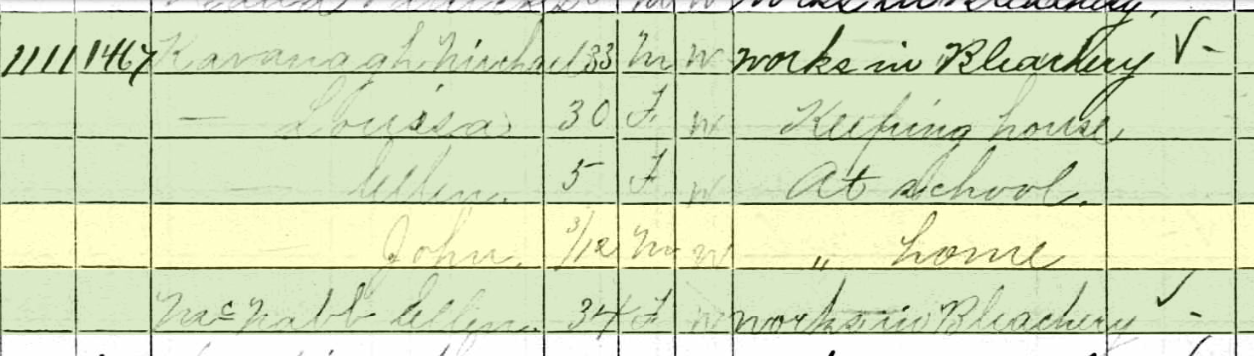 works in Bleachery
1111 1467 Kavanagh Michael 33 M W works in Bleachery √ -
— Louisa 30 F W Keeping house
— Ellen 5 F W At school.
— John. 3/12 M W " home
McNabb Ellen. 34 F W works in Bleachery √ -